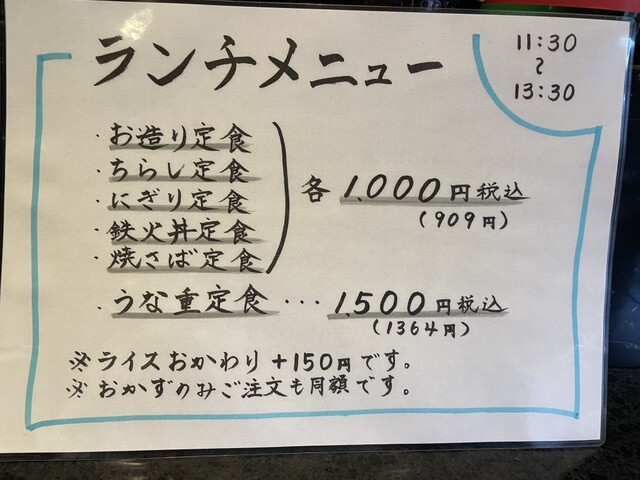 ランチメニュー
11:30
~
13:30
・お造り定食
・ちらし定食
・にぎり定食
・鉄火丼定食
・焼さば定食
各 1.000円税込
(909円)
・うな重定食 … 1.500円税込
(1364円)
※ライスおかわり+150円です。
※おかずのみご注文も同額です。